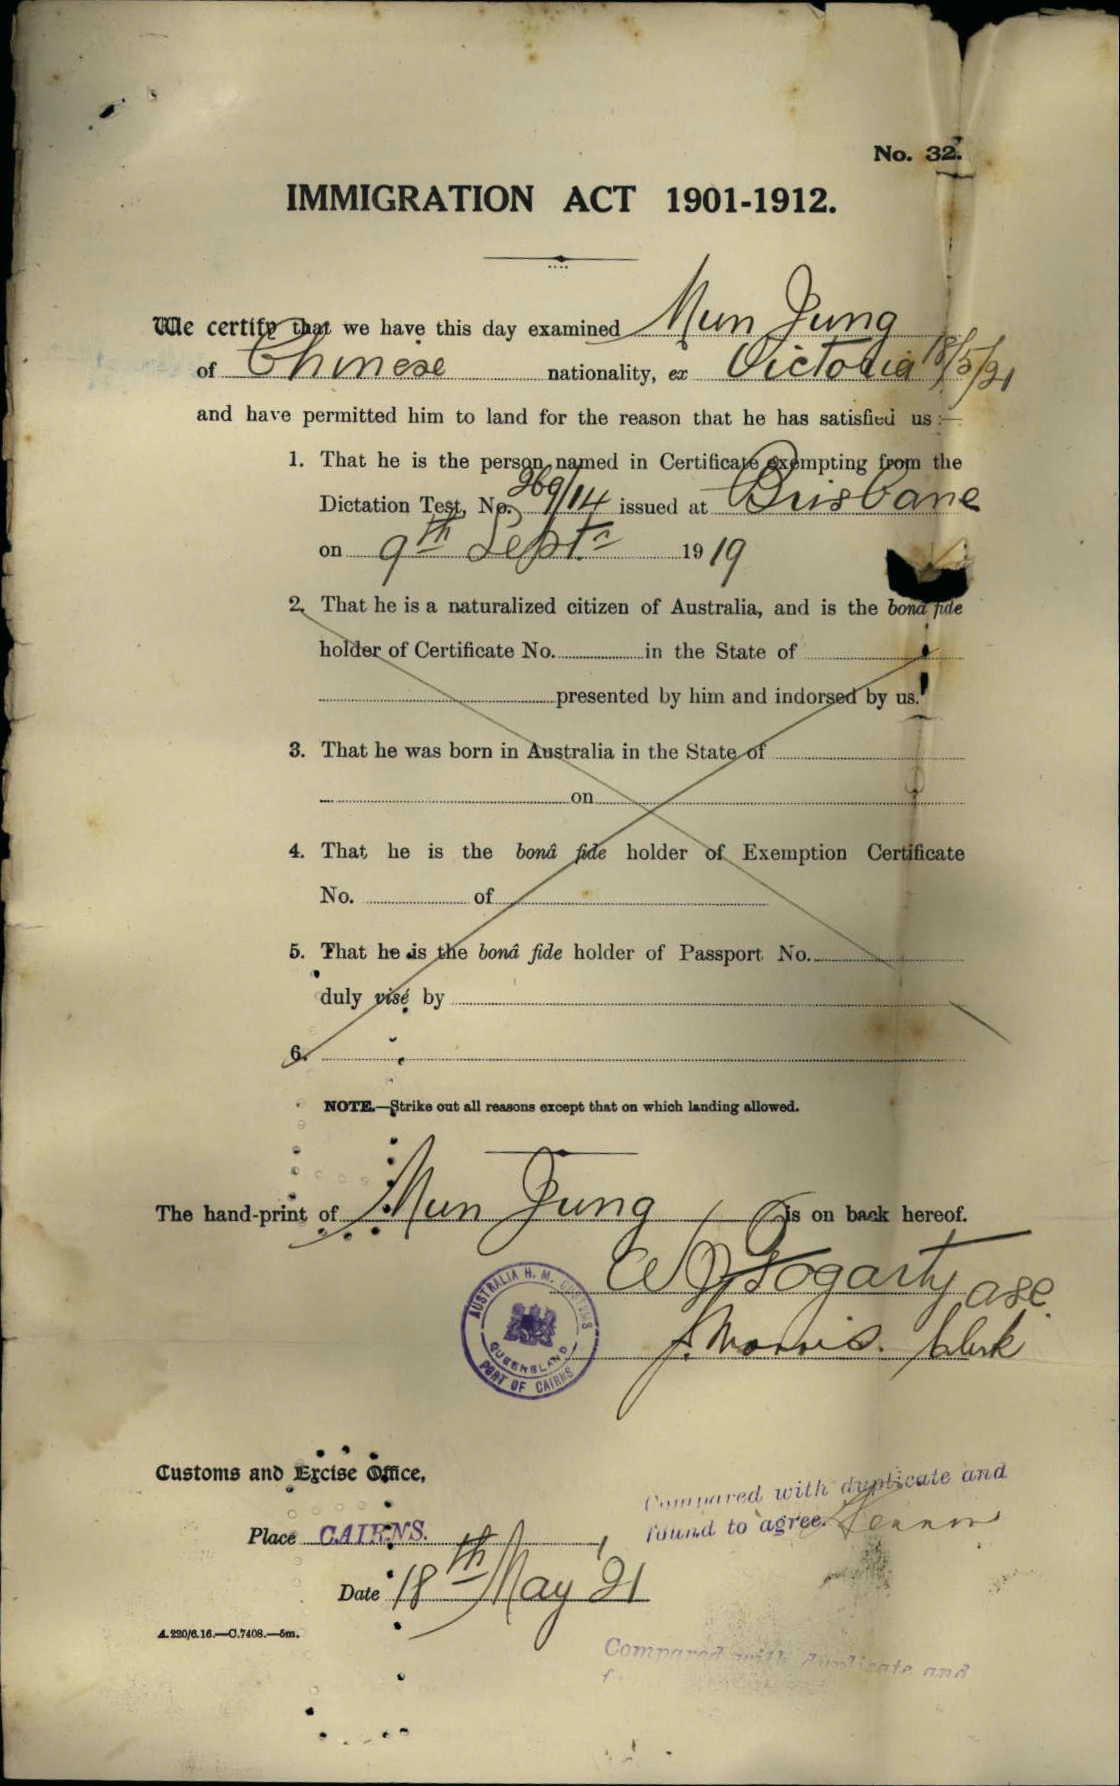 No. 32.
IMMIGRATION ACT 1901-1912.
We certify that we have this day examined Mun Jung
of Chinese nationality, ex Victoria 18/5/21
and have permitted him to land for the reason that he has satisfied us :—
1. That he is the person named in Certificate exempting from the
Dictation Test, No. 269/14 issued at Brisbane
on 9th Septr 1919
2. That he is a naturalized citizen of Australia, and is the bonâ fide
holder of Certificate No. in the State of
presented by him and indorsed by us.
3. That he was born in Australia in the State of
on
4. That he is the bonâ fide holder of Exemption Certificate
No. of
5. That he is the bonâ fide holder of Passport No.
duly visé by
6.
NOTE.—Strike out all reasons except that on which landing allowed.
The hand-print of Mun Jung is on back hereof.
Fogarty
AUSTRALIA H. M. CUSTOMS
QUEENSLAND
PORT OF CAIRNS
J. Morris. Clerk
Customs and Excise Office,
Compared with duplicate and
found to agree.
Place CAIRNS.
Date 18th May 21
A.220/6.16.—C.7408.—5m.
Compared with duplicate and